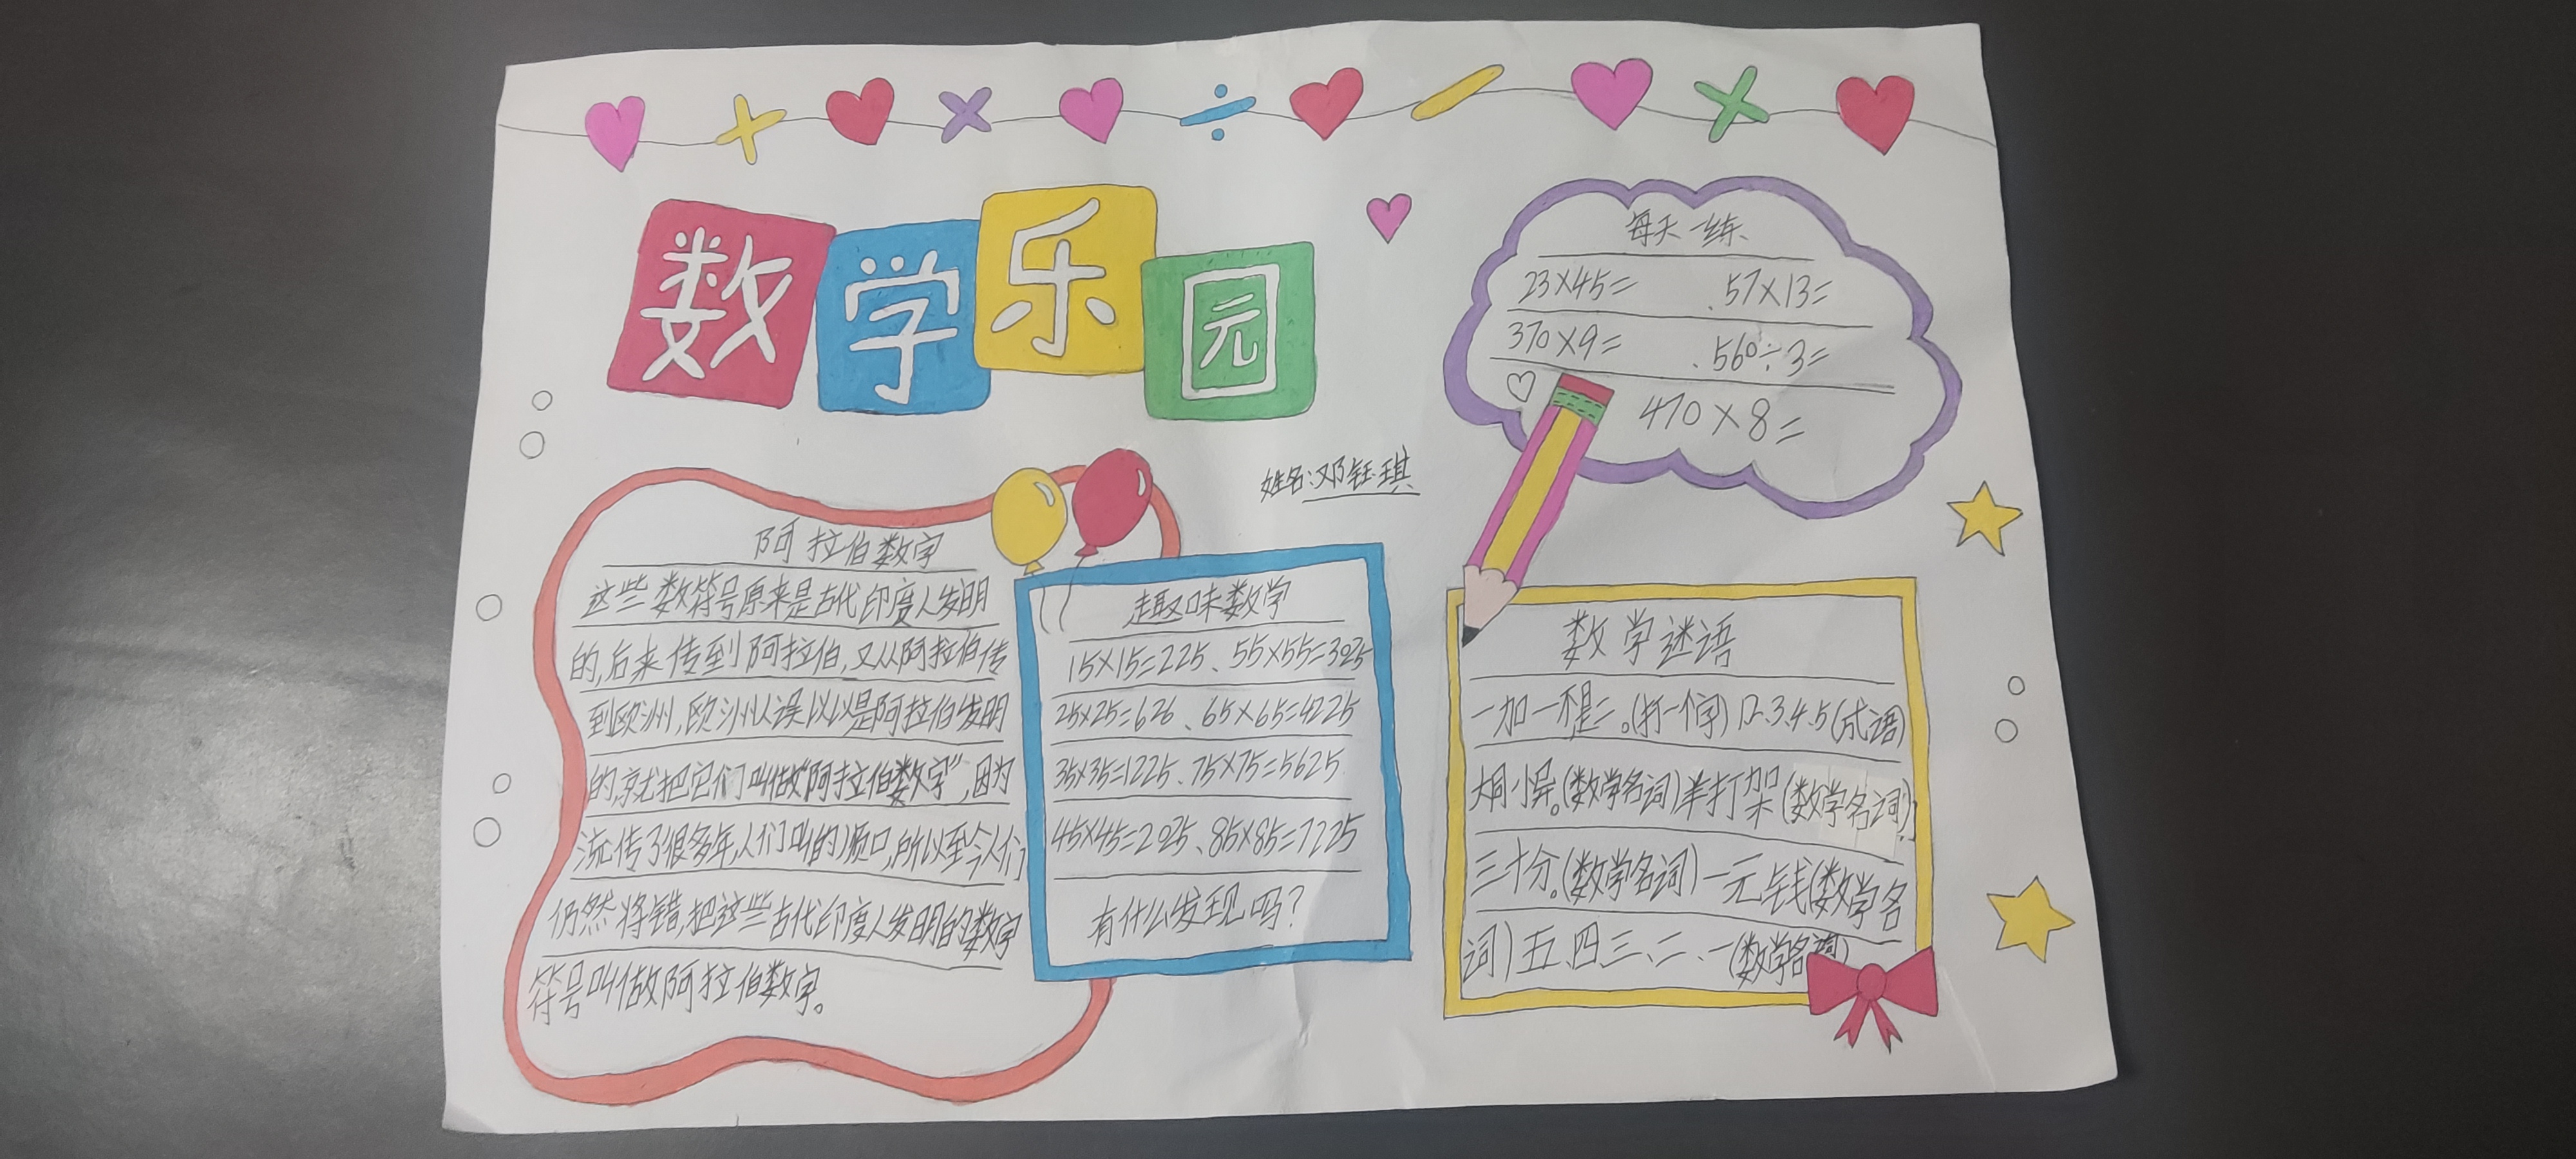 数学乐园
每天一练
23×45= 57×13=
370×9= 560÷3=
470×8=
姓名:邓钰琪
阿拉伯数字
这些数符号原来是古代印度人发明
的,后来传到阿拉伯,又从阿拉伯传
到欧洲,欧洲人误以以是阿拉伯发明
的,就把它们叫做“阿拉伯数字”,因为
流传了很多年,人们叫的顺口,所以至今人们
仍然将错,把这些古代印度人发明的数字
符号叫做阿拉伯数字。
趣味数学
15×15=225、55×55=3025
25×25=626、65×65=4225
35×35=1225、75×75=5625
45×45=2025、85×85=7225
有什么发现吗?
数学谜语
一加一不是二。(打一个字) 1.2.3.4.5(成语)
大同小异。(数学名词)羊打架(数学名词)
三十分。(数学名词)一元钱(数学名
词)五、四、三、二、一(数学名词)